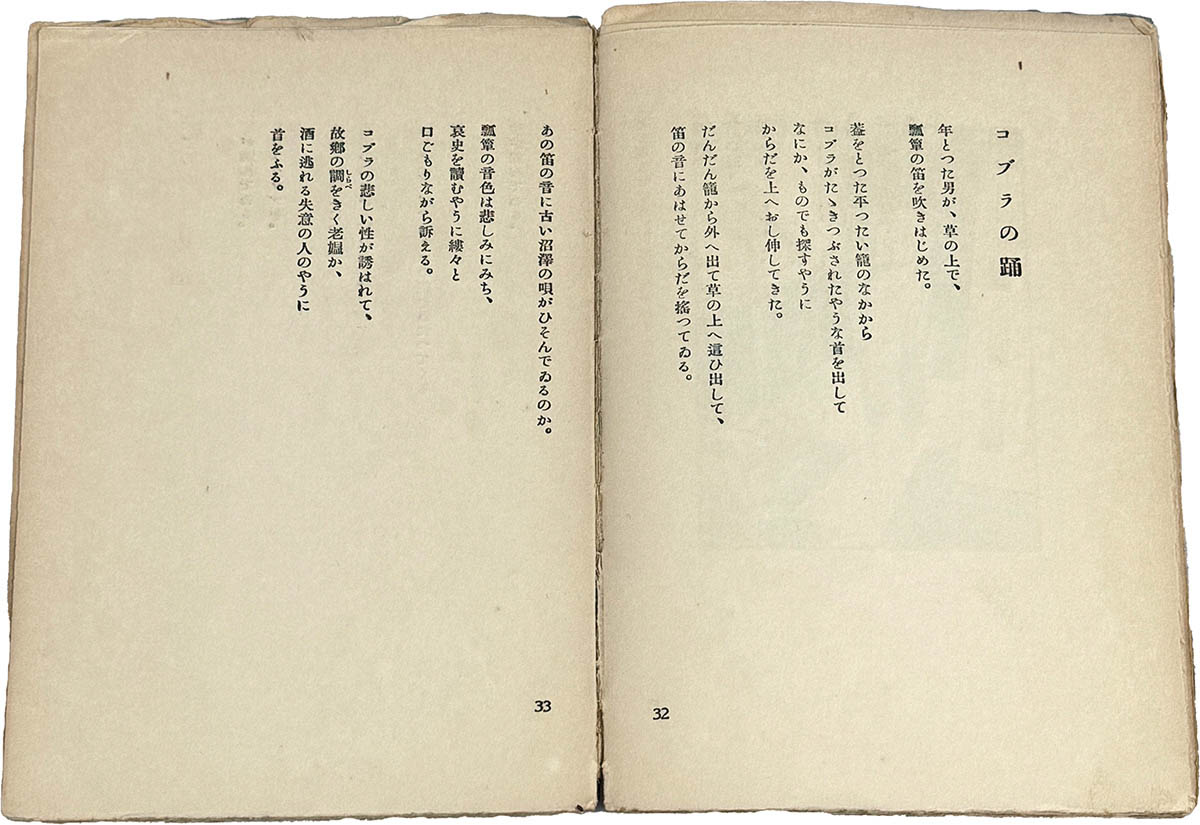 コブラの踊
年とつた男が、草の上で、
瓢簞の笛を吹きはじめた。
蓋をとつた平つたい籠のなかから
コブラがたゝきつぶされたやうな首を出して
なにか、ものでも探すやうに
からだを上へおし伸してきた。
だんだん籠から外へ出て草の上へ這ひ出して、
笛の音にあはせてからだを搖つてゐる。
32
あの笛の音に古い沼澤の唄がひそんでゐるのか。
瓢簞の音色は悲しみにみち、
哀史を讀むやうに縷々と
口ごもりながら訴える。
コブラの悲しい性が誘はれて、
故鄕の調しらべをきく老媼か、
酒に逃れる失意の人のやうに
首をふる。
33